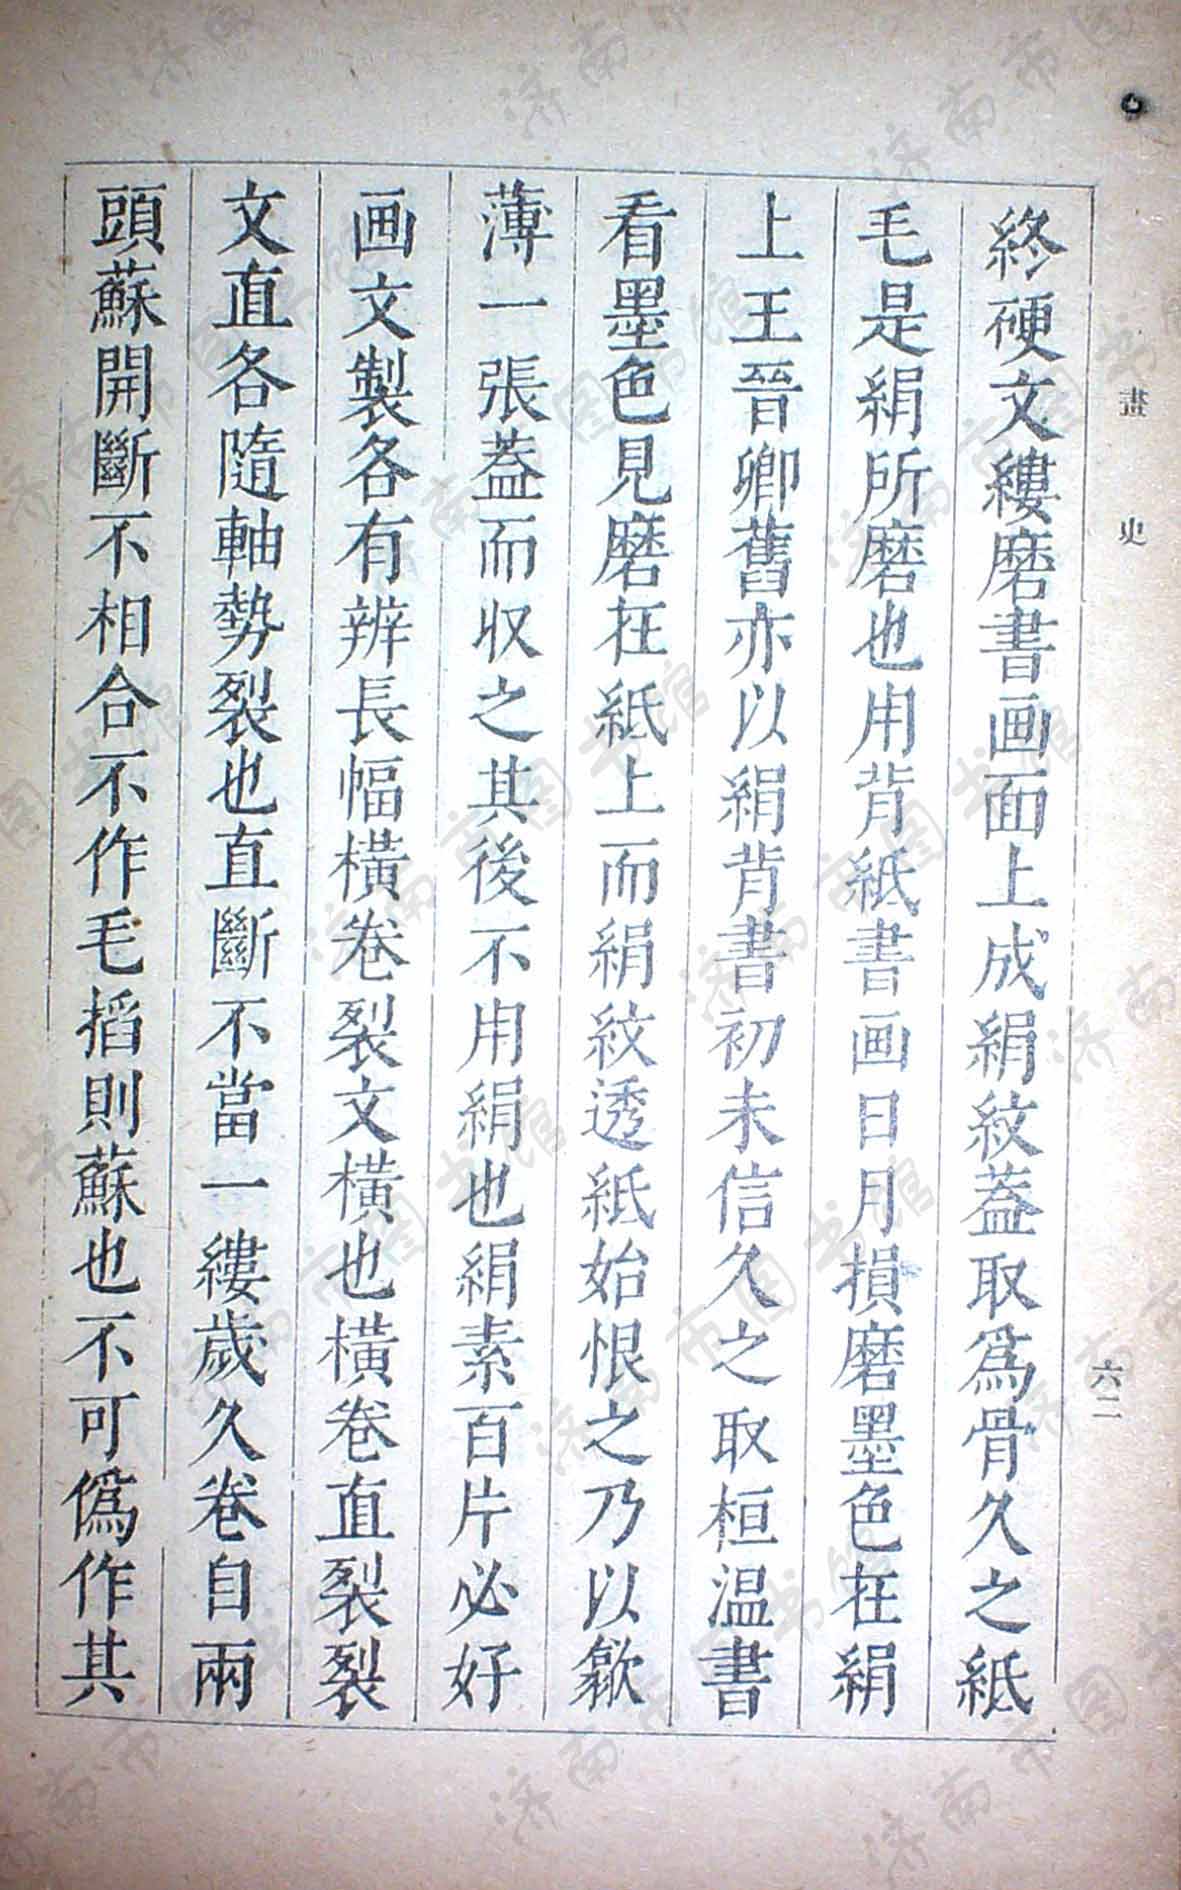 終硬文縷磨書画面上成絹紋蓋取爲骨久之紙
毛是絹所磨也用背紙書画日月損磨墨色在絹
上王晉卿舊亦以絹背書初未信久之取桓温書
看墨色見磨在紙上而絹紋透紙始恨之乃以歙
薄一張蓋而収之其後不用絹也絹素百片必好
画文製各有辨長幅橫卷裂文橫也橫卷直裂裂
文直各隨軸勢裂也直斷不當一縷歲久卷自兩
頭蘇開斷不相合不作毛搯則蘇也不可僞作其
畫史
六二
济南市图书馆